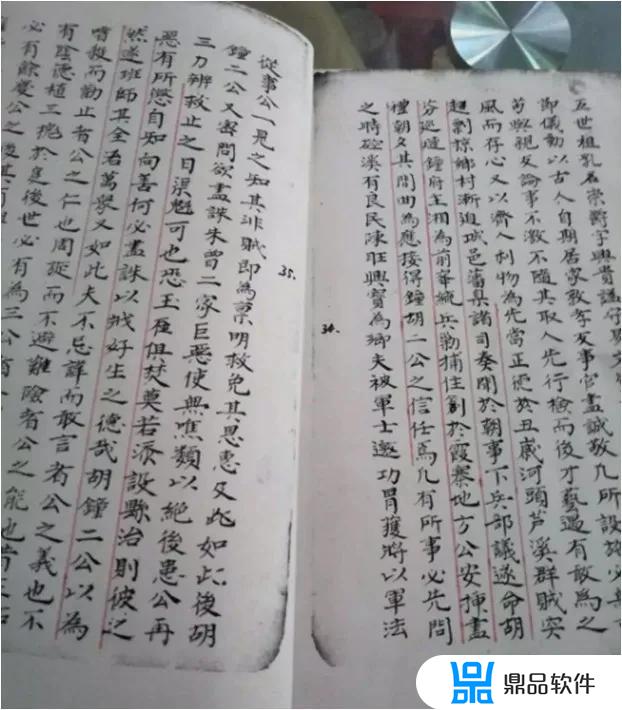 五世祖乳名崇爵字興貴謚
節儀動以古人自期居家敦孝友事官盡誠敬凡所設施必
苟與親友論事不激不隨其取人先行檢而後才藝過有敢為之
風而存心又以濟人利物為先當正德於丑歲河頭芦溪群賊突
起剽掠鄉村漸迫城邑藩臬諸司奏聞於朝事下兵部議遂命胡
芬巡鍾府王相為前率統兵勦捕住劄於霞寨地方公安揷盡
禮朝夕其間曲為應接得鐘胡二公之信任焉凡有所事必先問
之時碰溪有良民陳旺興寶為鄉夫被軍士邀功冒獲將以軍法
34.
從事公一見之知其非賊即為稟明救免其恩惠及此如此後胡
35.
鐘二公又密問欲盡誅朱曾二家巨惡使無噍類以絕後患公再
三力辨救止之日渠魁可也恐玉石俱焚莫若添設縣治則彼之
惡有所懲自知向善何必盡誅以戕好生之德哉胡鐘二公以為
然遂班師其全活萬眾又如此夫不忌諱而敢言者公之義也不
嗜殺而勸止者公之仁也周旋而不避難險者公之能也
有陰德植三槐於庭後世必有為三公
必有餘慶公之後其有
鼎品软件